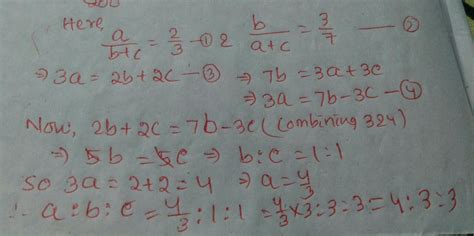 Here,
a/b+c = 2/3 —① & b/a+c = 3/7 —②
⇒ 3a = 2b+2c —③ ⇒ 7b = 3a+3c
⇒ 3a = 7b-3c —④
Now, 2b+2c = 7b-3c (Combining 3&4)
⇒ 5b = 5c ⇒ b:c = 1:1
So 3a = 2+2 = 4 ⇒ a = 4/3
∴ a:b:c = 4/3:1:1 = 4/3×3:3:3 = 4:3:3